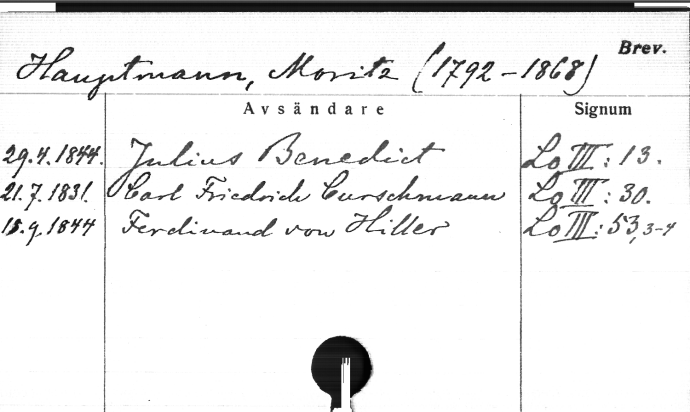 Brev.
Hauptmann, Moritz (1792-1868)
Avsändare Signum
29.4.1844. Julius Benedict Lo III: 13.
21.7.1831. Carl Friedrich Curschmann Lo III: 30.
15.9.1844 Ferdinand von Hiller Lo III: 53, 3-4